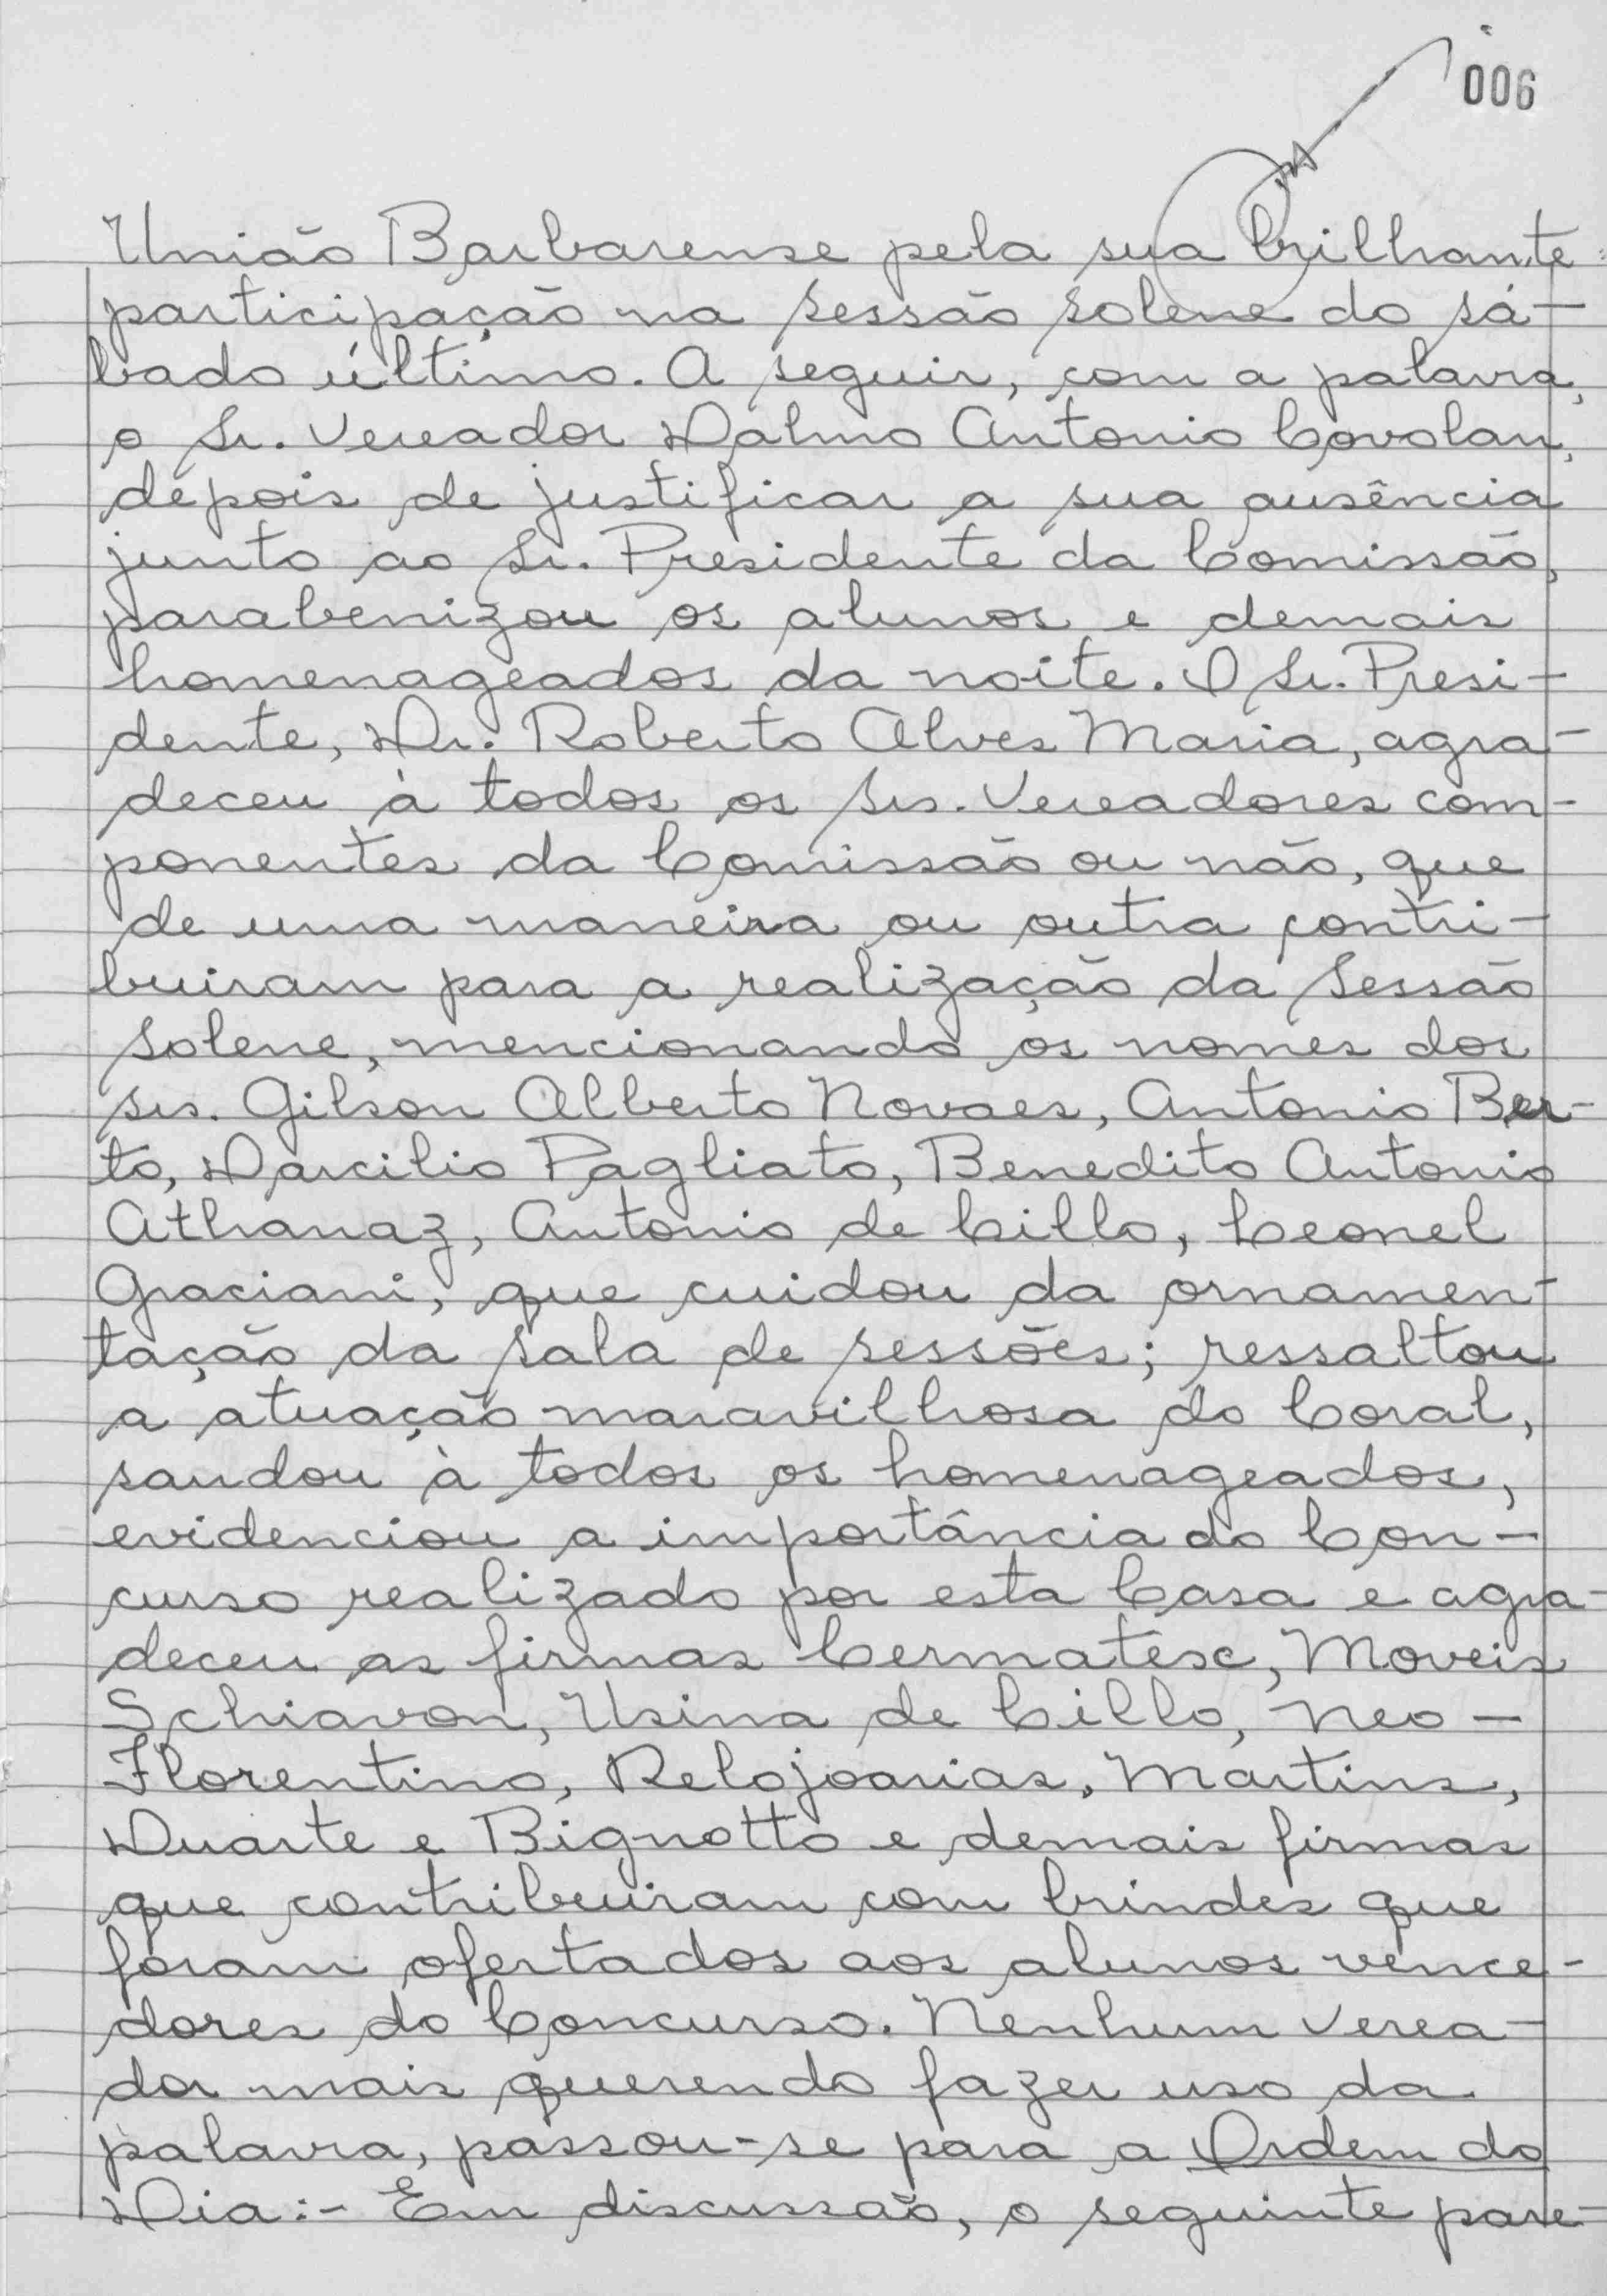 006
União Barbarense pela sua brilhante
participação na sessão solene do sá-
bado último. A seguir, com a palavra,
o Sr. Vereador Dalmo Antonio Covolan,
depois de justificar a sua ausência
junto ao Sr. Presidente da Comissão,
parabenizou os alunos e demais
homenageados da noite. O Sr. Presi-
dente, Dr. Roberto Alves Maria, agra-
deceu à todos os Srs. Vereadores com-
ponentes da Comissão ou não, que
de uma maneira ou outra contri-
buiram para a realização da Sessão
Solene, mencionando os nomes dos
srs. Gilson Alberto Novaes, Antonio Ber-
to, Darcilio Pagliato, Benedito Antonio
Athanaz, Antonio de Cillo, Leonel
Graciani, que cuidou da ornamen-
tação da sala de sessões; ressaltou
a atuação maravilhosa do Coral,
saudou à todos os homenageados,
evidenciou a importância do Con-
curso realizado por esta Casa e agra-
deceu as firmas Cermatesc, Moveis
Schiavon, Usina de Cillo, Neo-
Florentino, Relojoarias, Martins,
Duarte e Bignotto e demais firmas
que contribuiram com brindes que
foram ofertados aos alunos vence-
dores do Concurso. Nenhum Verea-
dor mais querendo fazer uso da
palavra, passou-se para a Ordem do
Dia:- Em discussão, o seguinte pare-